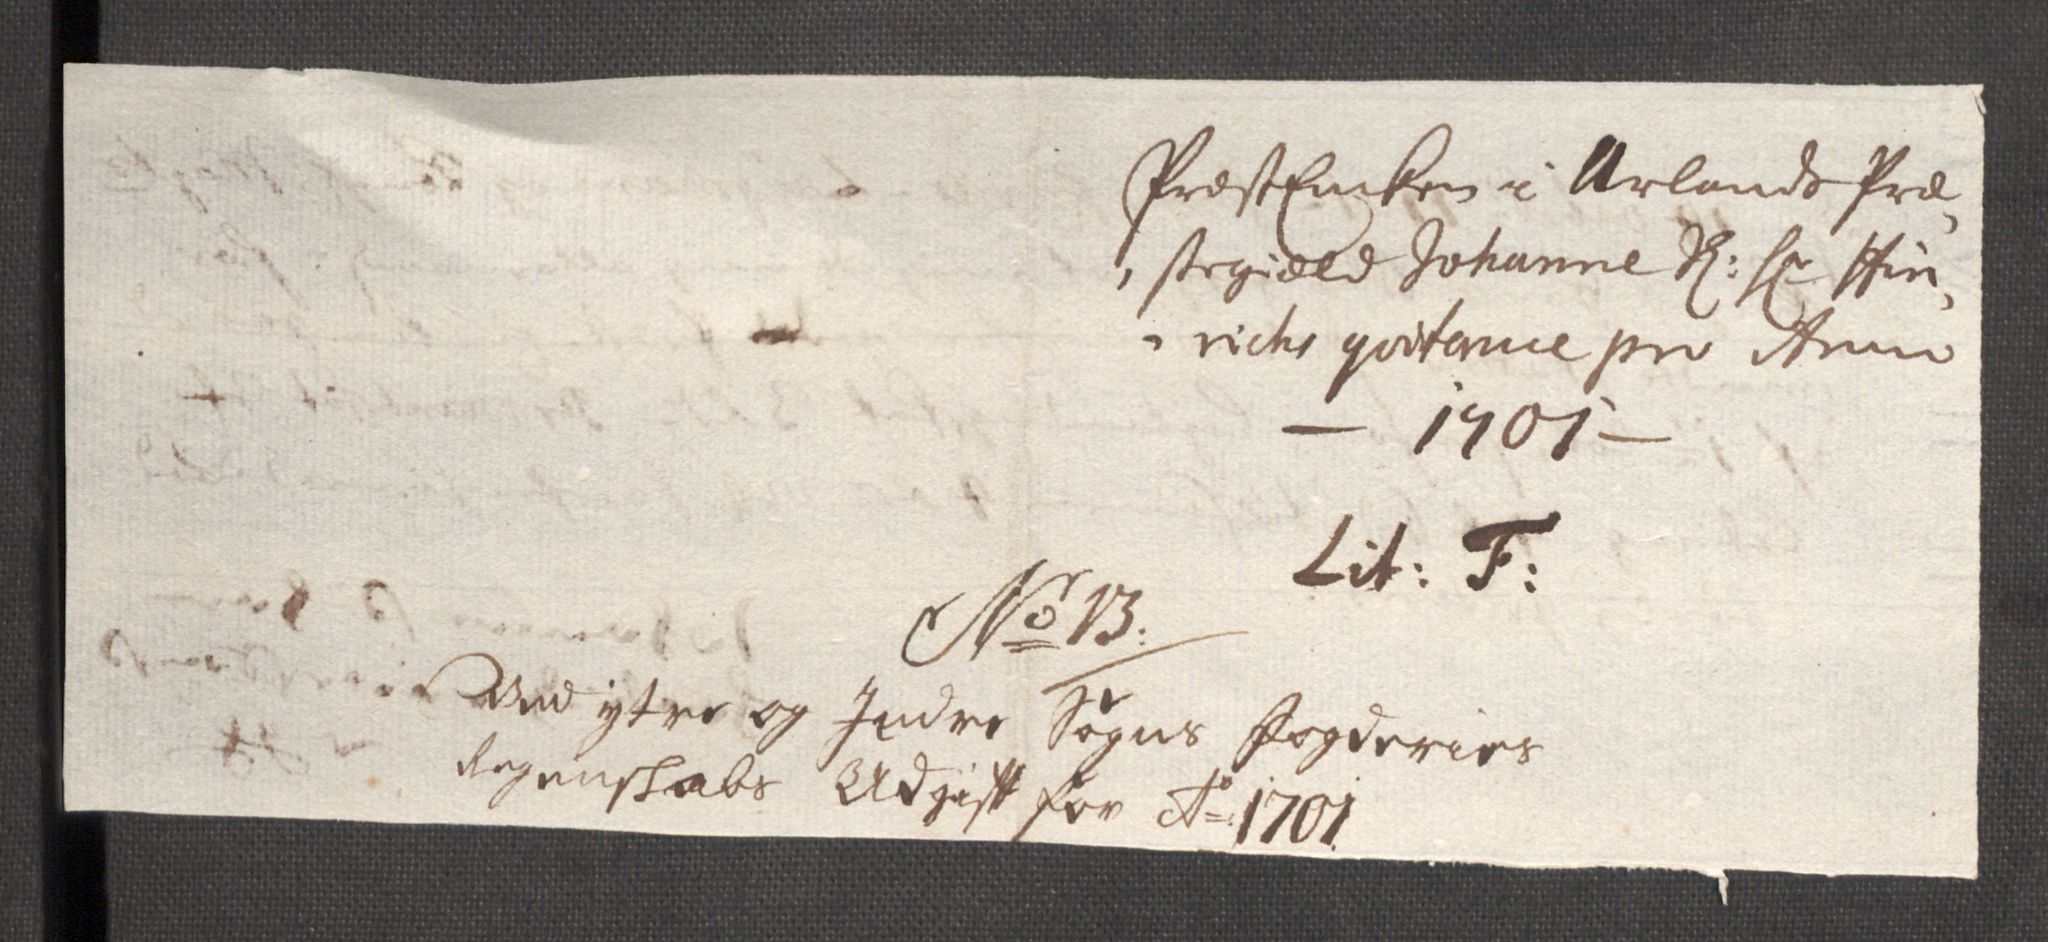 PræstEncken i Urlands Præ,
,stegiæld Johanne Hin,
,richs qvitance pro Anno
— 1701 —
Lit: F:
No 13:
Ved ytre og Indre Sogns Fogderies
Regenskabs Udgift for Ao: 1701